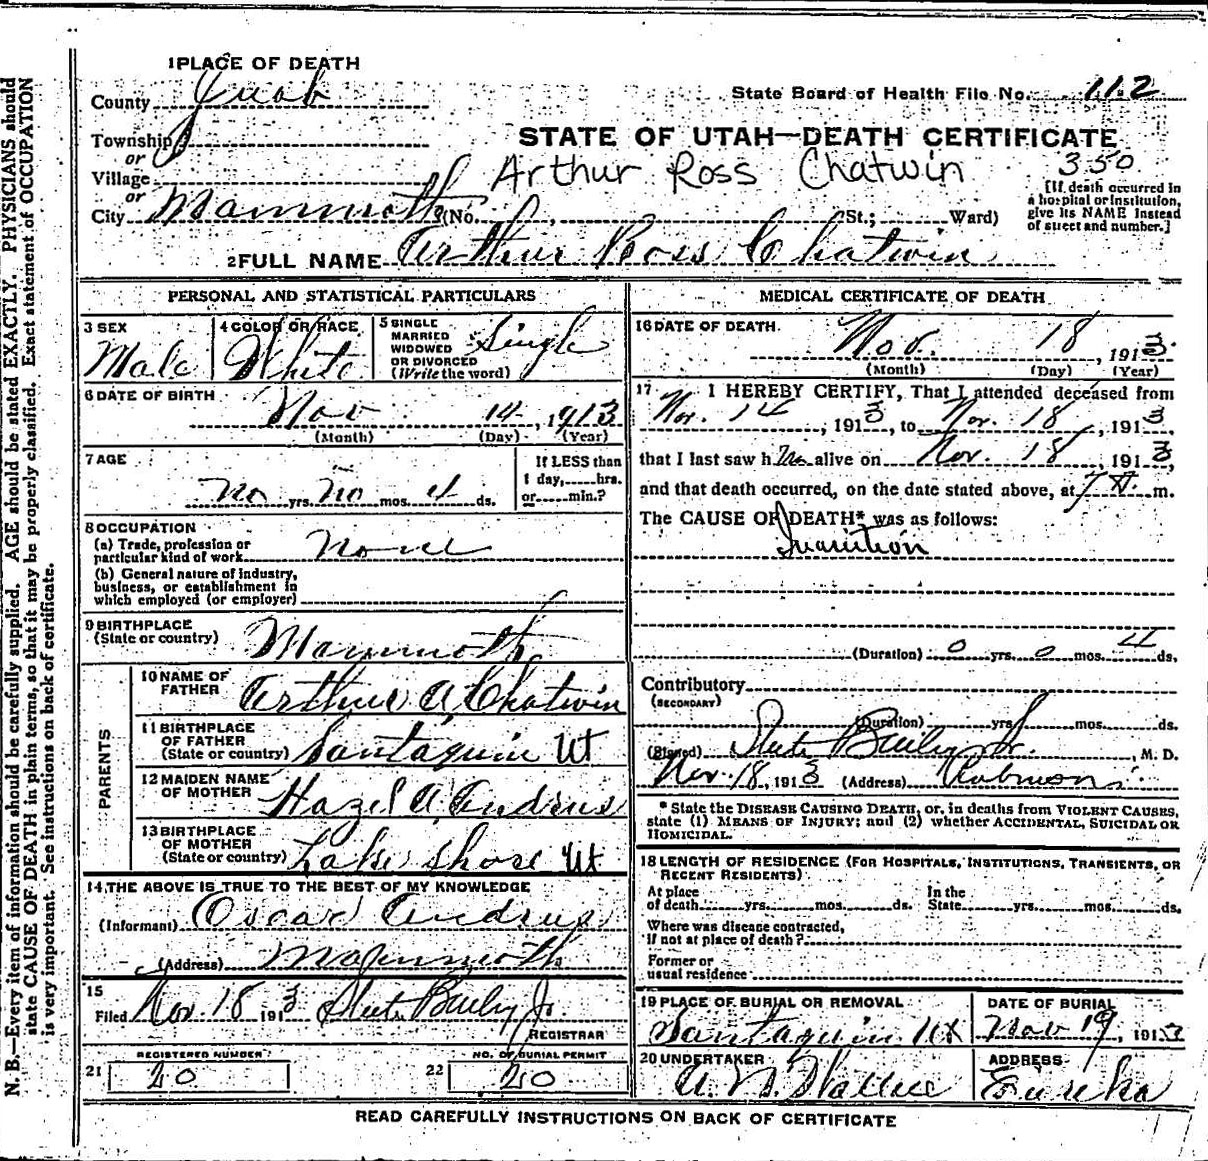 1 PLACE OF DEATH
County Juab
State Board of Health File No. 112
Township
or
Village
or
STATE OF UTAH—DEATH CERTIFICATE
Arthur Ross Chatwin
350
[If death occurred in a hospital or institution, give its NAME instead of street and number.]
City Mammoth (No. , St.; Ward)
2 FULL NAME Arthur Ross Chatwin
PERSONAL AND STATISTICAL PARTICULARS
3 SEX
Male
4 COLOR OR RACE
White
5 SINGLE
MARRIED
WIDOWED
OR DIVORCED
(Write the word)
Single
6 DATE OF BIRTH
Nov 14, 1913
(Month) (Day) (Year)
7 AGE
no yrs. no mos. 4 ds.
If LESS than
1 day, hrs.
or min.?
8 OCCUPATION
(a) Trade, profession or
particular kind of work None
(b) General nature of industry,
business, or establishment in
which employed (or employer)
9 BIRTHPLACE
(State or country) Mammoth
PARENTS
10 NAME OF
FATHER Arthur A. Chatwin
11 BIRTHPLACE
OF FATHER
(State or country) Santaquin Ut
12 MAIDEN NAME
OF MOTHER Hazel A. Andrus
13 BIRTHPLACE
OF MOTHER
(State or country) Lake Shore Ut
14 THE ABOVE IS TRUE TO THE BEST OF MY KNOWLEDGE
(Informant) Oscar Andrus
(Address) Mammoth
15
Filed Nov. 18 1913 Steele Bailey Jr
REGISTRAR
REGISTERED NUMBER
21 20
NO. OF BURIAL PERMIT
22 20
MEDICAL CERTIFICATE OF DEATH
16 DATE OF DEATH
Nov. 18, 1913
(Month) (Day) (Year)
17 I HEREBY CERTIFY, That I attended deceased from
Nov. 14, 1913, to Nov. 18, 1913,
that I last saw h im alive on Nov. 18 1913,
and that death occurred, on the date stated above, at 7 A. m.
The CAUSE OF DEATH* was as follows:
Inanition
(Duration) 0 yrs. 0 mos. 4 ds.
Contributory
(SECONDARY)
(Duration) yrs. mos. ds.
(Signed) Steele Bailey Jr., M. D.
Nov. 18, 1913 (Address) Robinson
* State the DISEASE CAUSING DEATH, or, in deaths from VIOLENT CAUSES,
state (1) MEANS OF INJURY; and (2) whether ACCIDENTAL, SUICIDAL OR
HOMICIDAL.
18 LENGTH OF RESIDENCE (FOR HOSPITALS, INSTITUTIONS, TRANSIENTS, OR
RECENT RESIDENTS)
At place
of death yrs. mos. ds.
In the
State yrs. mos. ds.
Where was disease contracted,
if not at place of death?
Former or
usual residence
19 PLACE OF BURIAL OR REMOVAL
Santaquin Ut
DATE OF BURIAL
Nov 19, 1913
20 UNDERTAKER
A. N. Wallace
ADDRESS
Eureka
READ CAREFULLY INSTRUCTIONS ON BACK OF CERTIFICATE
N. B.—Every item of information should be carefully supplied. AGE should be stated EXACTLY. PHYSICIANS should
state CAUSE OF DEATH in plain terms, so that it may be properly classified. Exact statement of OCCUPATION
is very important. See instructions on back of certificate.